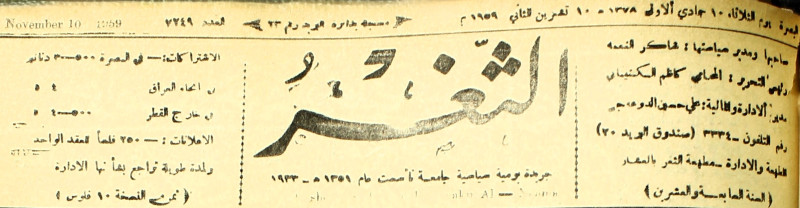 البصرة يوم الثلاثاء ١٠ جمادي الأولى ١٣٧٨ — ١٠ تشرين الثاني ١٩٥٩ م
﴿ مسجلة بدائرة البريد رقم ٢٣ ﴾
العدد ٧٢٤٩
November 10 1959
صاحبها ومدير سياستها : شاكر النعمه
رئيس التحرير : المحامي كاظم
مدير الادارة والمالية : علي حسين
رقم التلفون — ٣٣٣٤ (صندوق البريد ٢٠)
المطبعة والادارة — مطبعة الثغر بالعشار
( السنة السابعة والعشرين )
الثغر
جريدة يومية سياسية جامعة تأسست عام ١٣٥١ ه — ١٩٣٣
الاشتراكات : — في البصرة ٥٠٠ — ٣ دنانير
في انحاء العراق ٥ ٤
في خارج القطر ٥٠٠ — ٤ ٥
الاعلانات : — ٢٥٠ فلساً للعقد الواحد
ولمدة طويلة تراجع بشأنها الادارة
﴿ ثمن النسخة ١٠ فلوس ﴾